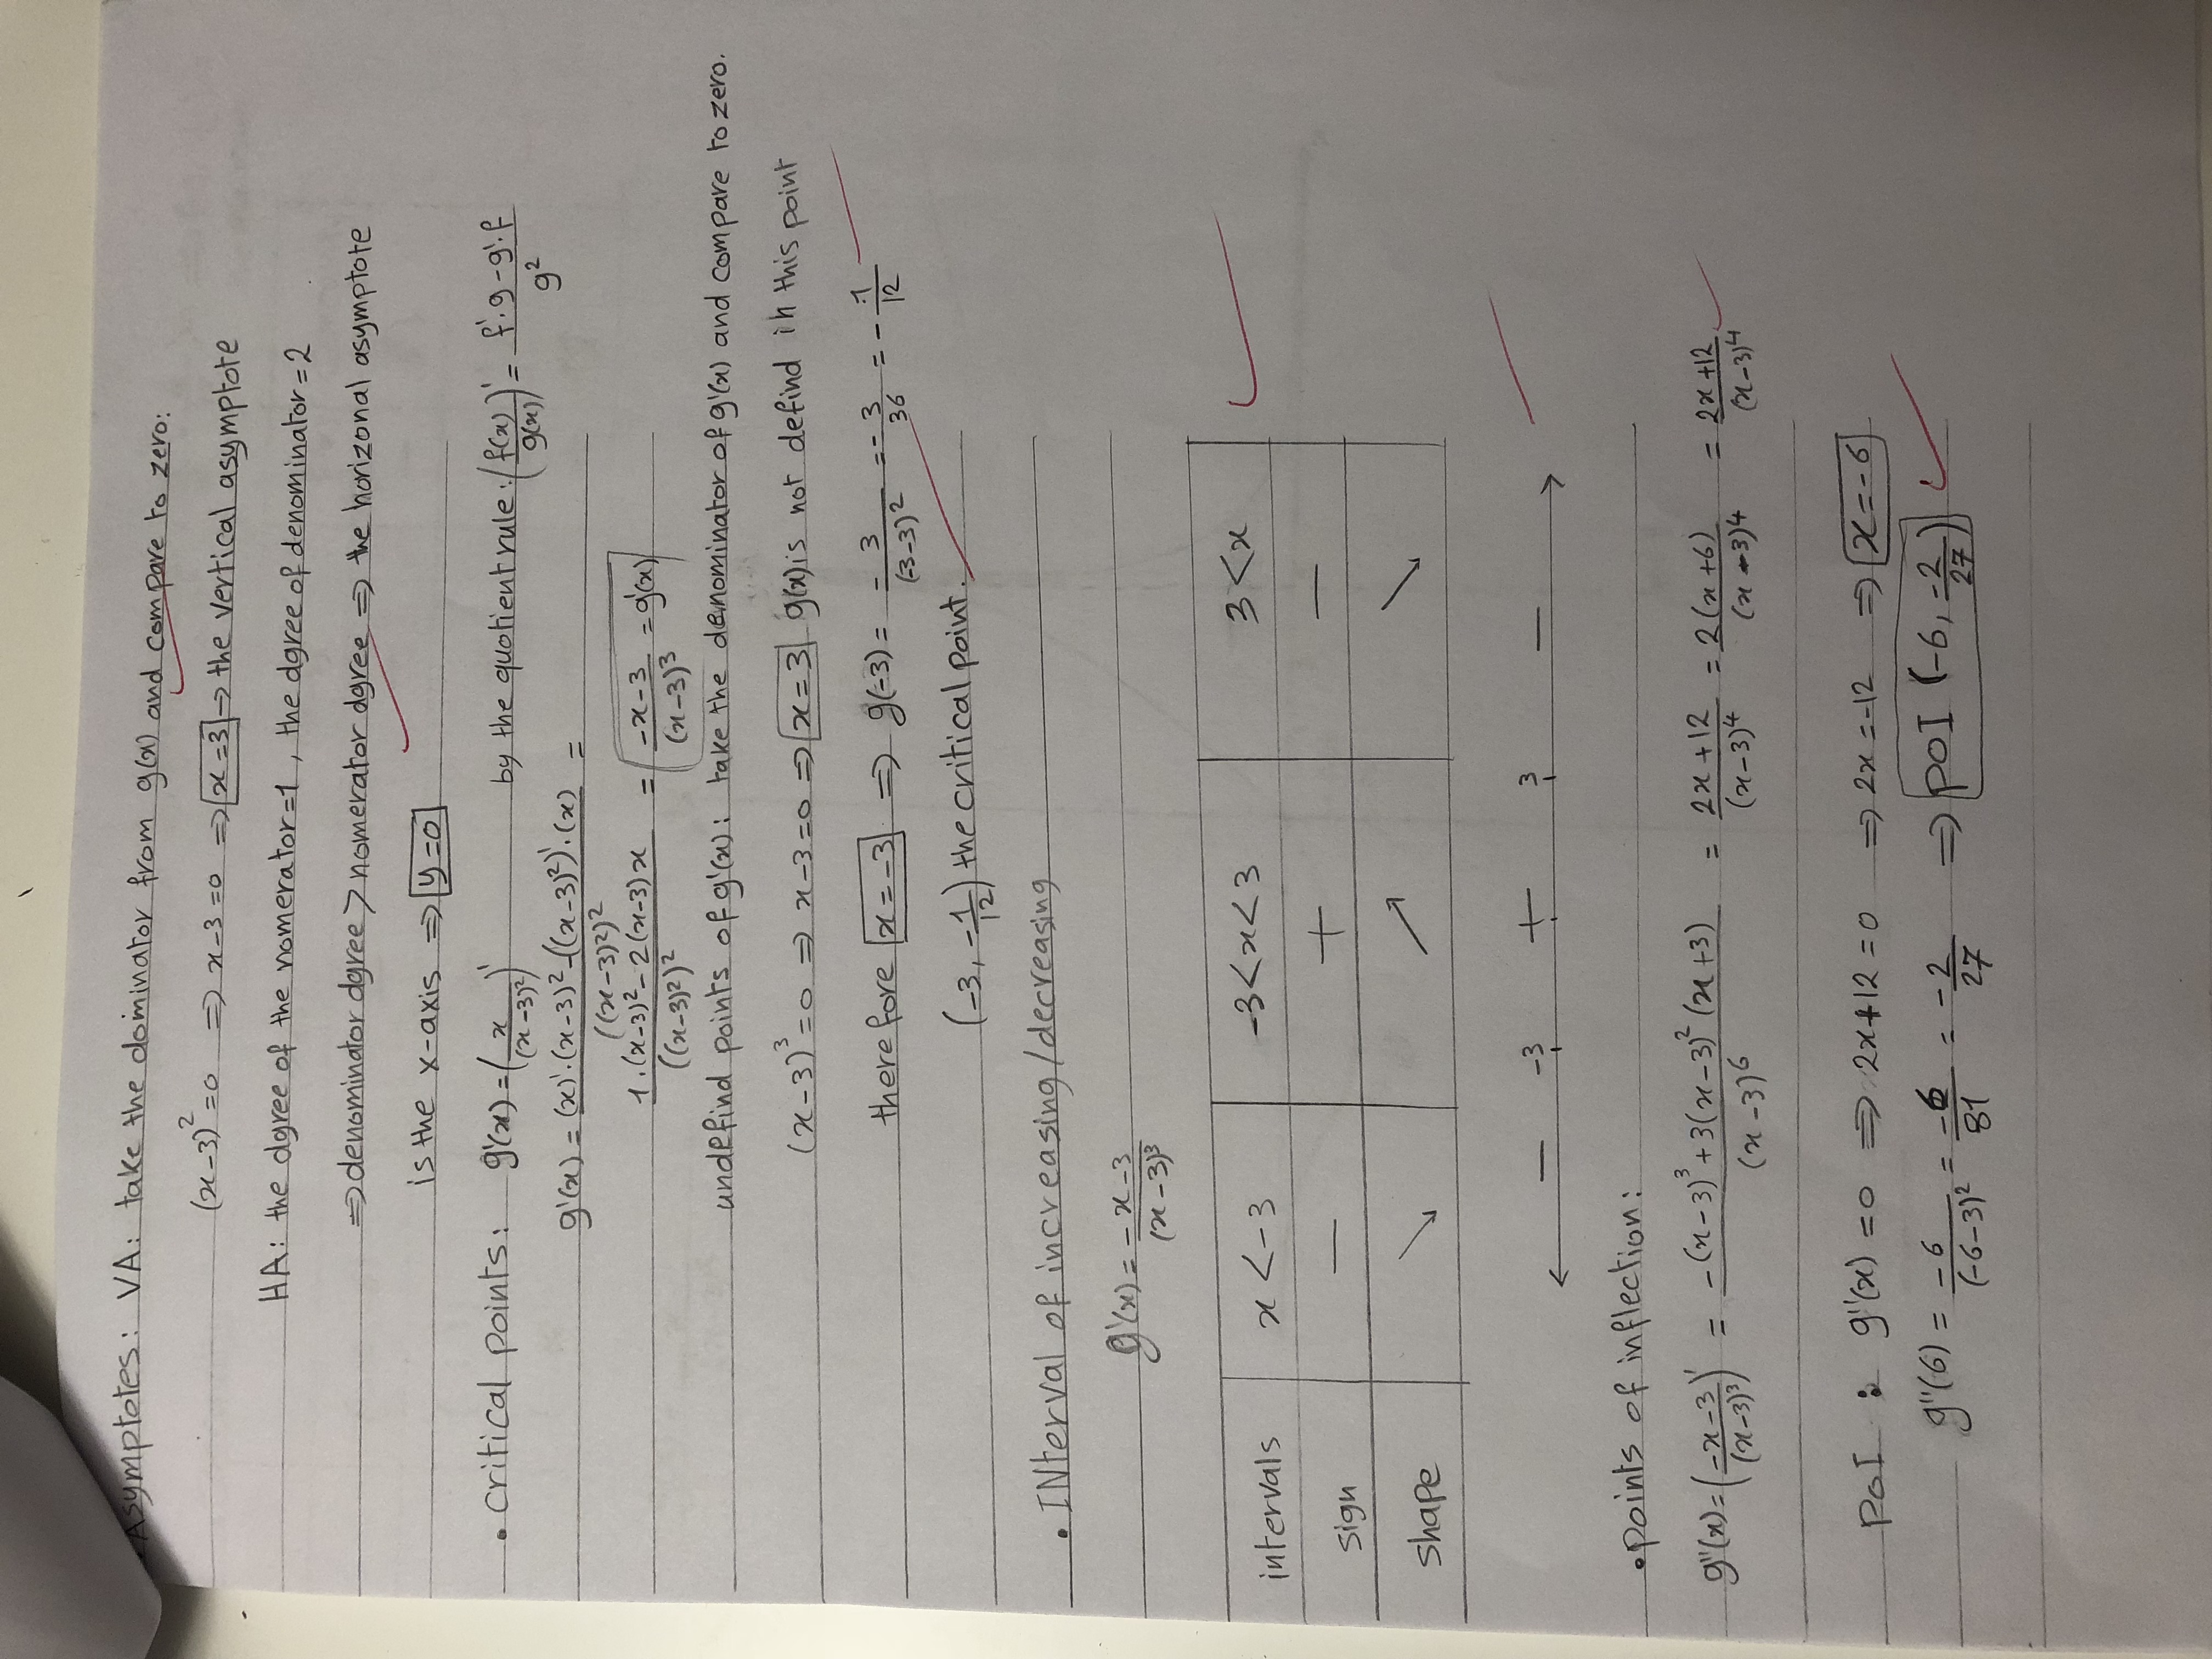 • Asymptotes: VA: take the dominator from g(x) and compare to zero:
(x-3)²=0 ⇒ x-3=0 ⇒ x=3 ⇒ the vertical asymptote
HA: the dgree of the nomerator=1, the dgree of denominator=2
⇒ denominator dgree > nomerator dgree ⇒ the horizonal asymptote
is the x-axis ⇒ y=0
• critical points: g'(x)=(x/(x-3)²)' by the quotient rule: (f(x)/g(x))' = (f'.g-g'.f)/g²
g'(x)=((x)'.(x-3)²-((x-3)²)'.(x))/((x-3)²)² =
(1.(x-3)²-2(x-3)x)/((x-3)²)² = (-x-3)/(x-3)³ =g'(x)
undefind points of g'(x): take the denominator of g'(x) and compare to zero.
(x-3)³=0 ⇒ x-3=0 ⇒ x=3 g(x) is not defind in this point
there fore x=-3 ⇒ g(-3)= -3/(-3-3)² = -3/36 = -1/12
(-3, -1/12) the critical point.
• INterval of increasing/decreasing
g'(x)= (-x-3)/(x-3)³
intervals x<-3 -3<x<3 3<x
sign − + −
shape ↘ ↗ ↘
− -3 + 3 −
• points of inflection:
g''(x)=((-x-3)/(x-3)³)' = (-(x-3)³+3(x-3)²(x+3))/(x-3)⁶ = (2x+12)/(x-3)⁴ = 2(x+6)/(x-3)⁴ = (2x+12)/(x-3)⁴
PoI : g''(x)=0 ⇒ 2x+12=0 ⇒ 2x=-12 ⇒ x=-6
g''(6) = -6/(-6-3)² = -6/81 = -2/27 ⇒ POI (-6, -2/27)